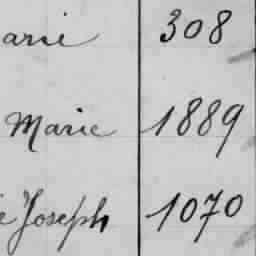 arie 308
Marie 1889
e Joseph 1070